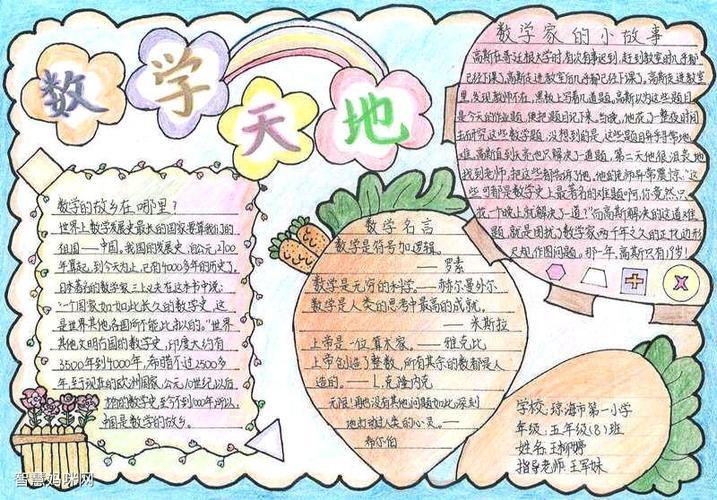 数学天地
数学的故乡在哪里?
世界上数学发展史最长的国家要算我们的
祖国——中国。我国的发展史,自公元2700
年算起,到今天为止,已有4000多年的历史了。
日本著名的数学家三上义夫在这本书中说:
“一个国家如此长久的数学史,这
是世界其他各国所不能比拟的。”世界
其他文明古国的数学史,印度大约有
3500年到4000年,希腊不过2500多
年,至于现在的欧洲国家,公元10世纪以后
的数学史至今不到1000年,所以
中国是数学的故乡。
数学名言
数学是符号加逻辑。
——罗素
数学是无穷的科学。——赫尔曼外尔
数学是人类的思考中最高的成就。
——米斯拉
上帝是一位算术家。——雅克比
上帝创造了整数,所有其余的数都是人
造的。——L.克隆内克
无限!再也没有其他问题如此深刻
地打动人类的心灵。——
希尔伯
数学家的小故事
高斯在哥廷根大学时,有次有事迟到,赶到教室时几乎都
已经下课了。高斯走进教室
里,发现教师不在,黑板上写着几道题。高斯以为这些题目
是今天的作业题,便把题目记下来。当晚,他花了整夜时间
去研究这些数学题,没想到的是,这些题目异乎寻常地
难,高斯直到天亮也只解决了一道题,第二天他很沮丧地
找到老师,把这些都告诉了他,他的老师异常震惊:“这
些可都是数学史上最著名的难题啊,你竟然只
花一个晚上就解决了一道?”而高斯解决的这道难
题,就是困扰了数学家两千年之久的正十七边形
尺规作图问题。那一年,高斯只有18岁!
学校:琼海市第一小学
年级:五年级(8)班
姓名:王柳婷
指导老师 王军妹
智慧妈咪网